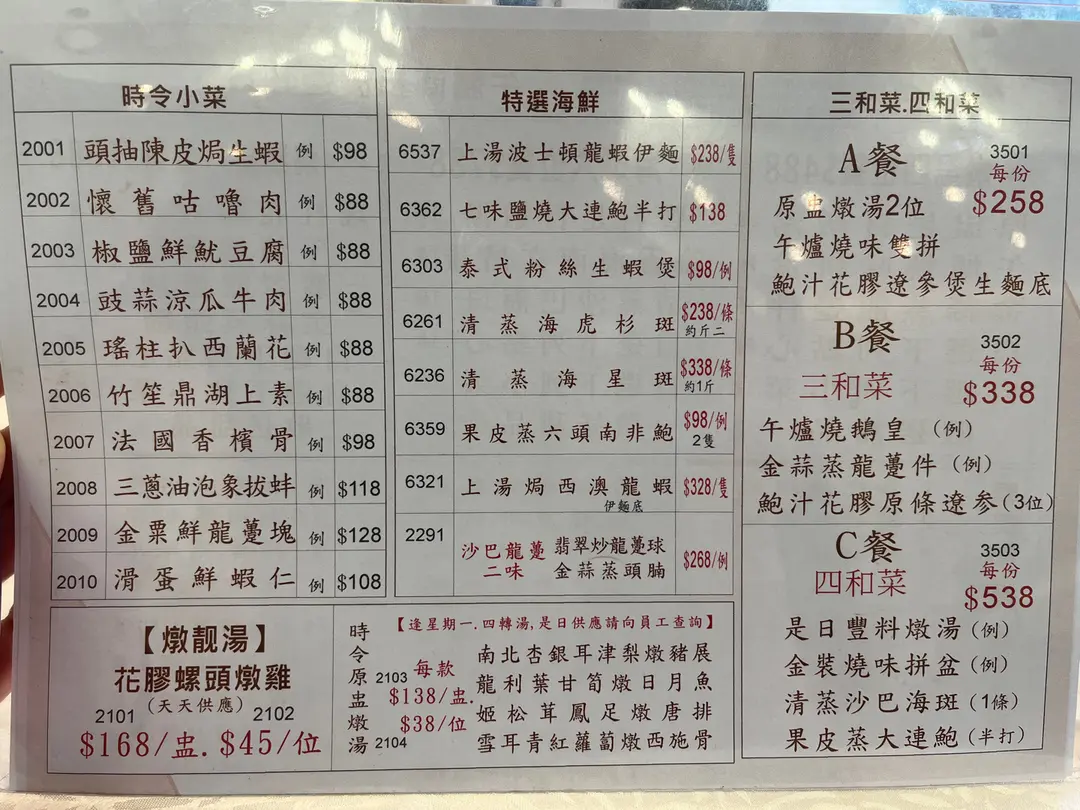 時令小菜
2001 頭抽陳皮焗生蝦 例 $98
2002 懷舊咕嚕肉 例 $88
2003 椒鹽鮮魷豆腐 例 $88
2004 豉蒜涼瓜牛肉 例 $88
2005 瑤柱扒西蘭花 例 $88
2006 竹笙鼎湖上素 例 $88
2007 法國香檳骨 例 $98
2008 三蔥油泡象拔蚌 例 $118
2009 金粟鮮龍躉塊 例 $128
2010 滑蛋鮮蝦仁 例 $108
特選海鮮
6537 上湯波士頓龍蝦伊麵 $238/隻
6362 七味鹽燒大連鮑半打 $138
6303 泰式粉絲生蝦煲 $98/例
6261 清蒸海虎杉斑 $238/條
約斤二
6236 清蒸海星斑 $338/條
約1斤
6359 果皮蒸六頭南非鮑 $98/例
2隻
6321 上湯焗西澳龍蝦 $328/隻
伊麵底
2291 沙巴龍躉 翡翠炒龍躉球
二味 金蒜蒸頭腩 $268/例
三和菜.四和菜
A餐 3501
每份
原盅燉湯2位 $258
午爐燒味雙拼
鮑汁花膠遼參煲生麵底
B餐 3502
每份
三和菜 $338
午爐燒鵝皇（例）
金蒜蒸龍躉件（例）
鮑汁花膠原條遼参(3位)
C餐 3503
每份
四和菜 $538
是日豐料燉湯（例）
金裝燒味拼盆（例）
清蒸沙巴海斑（1條）
果皮蒸大連鮑（半打）
【燉靚湯】
花膠螺頭燉雞
（天天供應）
2101 2102
$168/盅. $45/位
時令原盅燉湯
2103 每款
$138/盅.
$38/位
2104
【逢星期一.四轉湯,是日供應請向員工查詢】
南北杏銀耳津梨燉豬展
龍利葉甘筍燉日月魚
姬松茸鳳足燉唐排
雪耳青紅蘿蔔燉西施骨